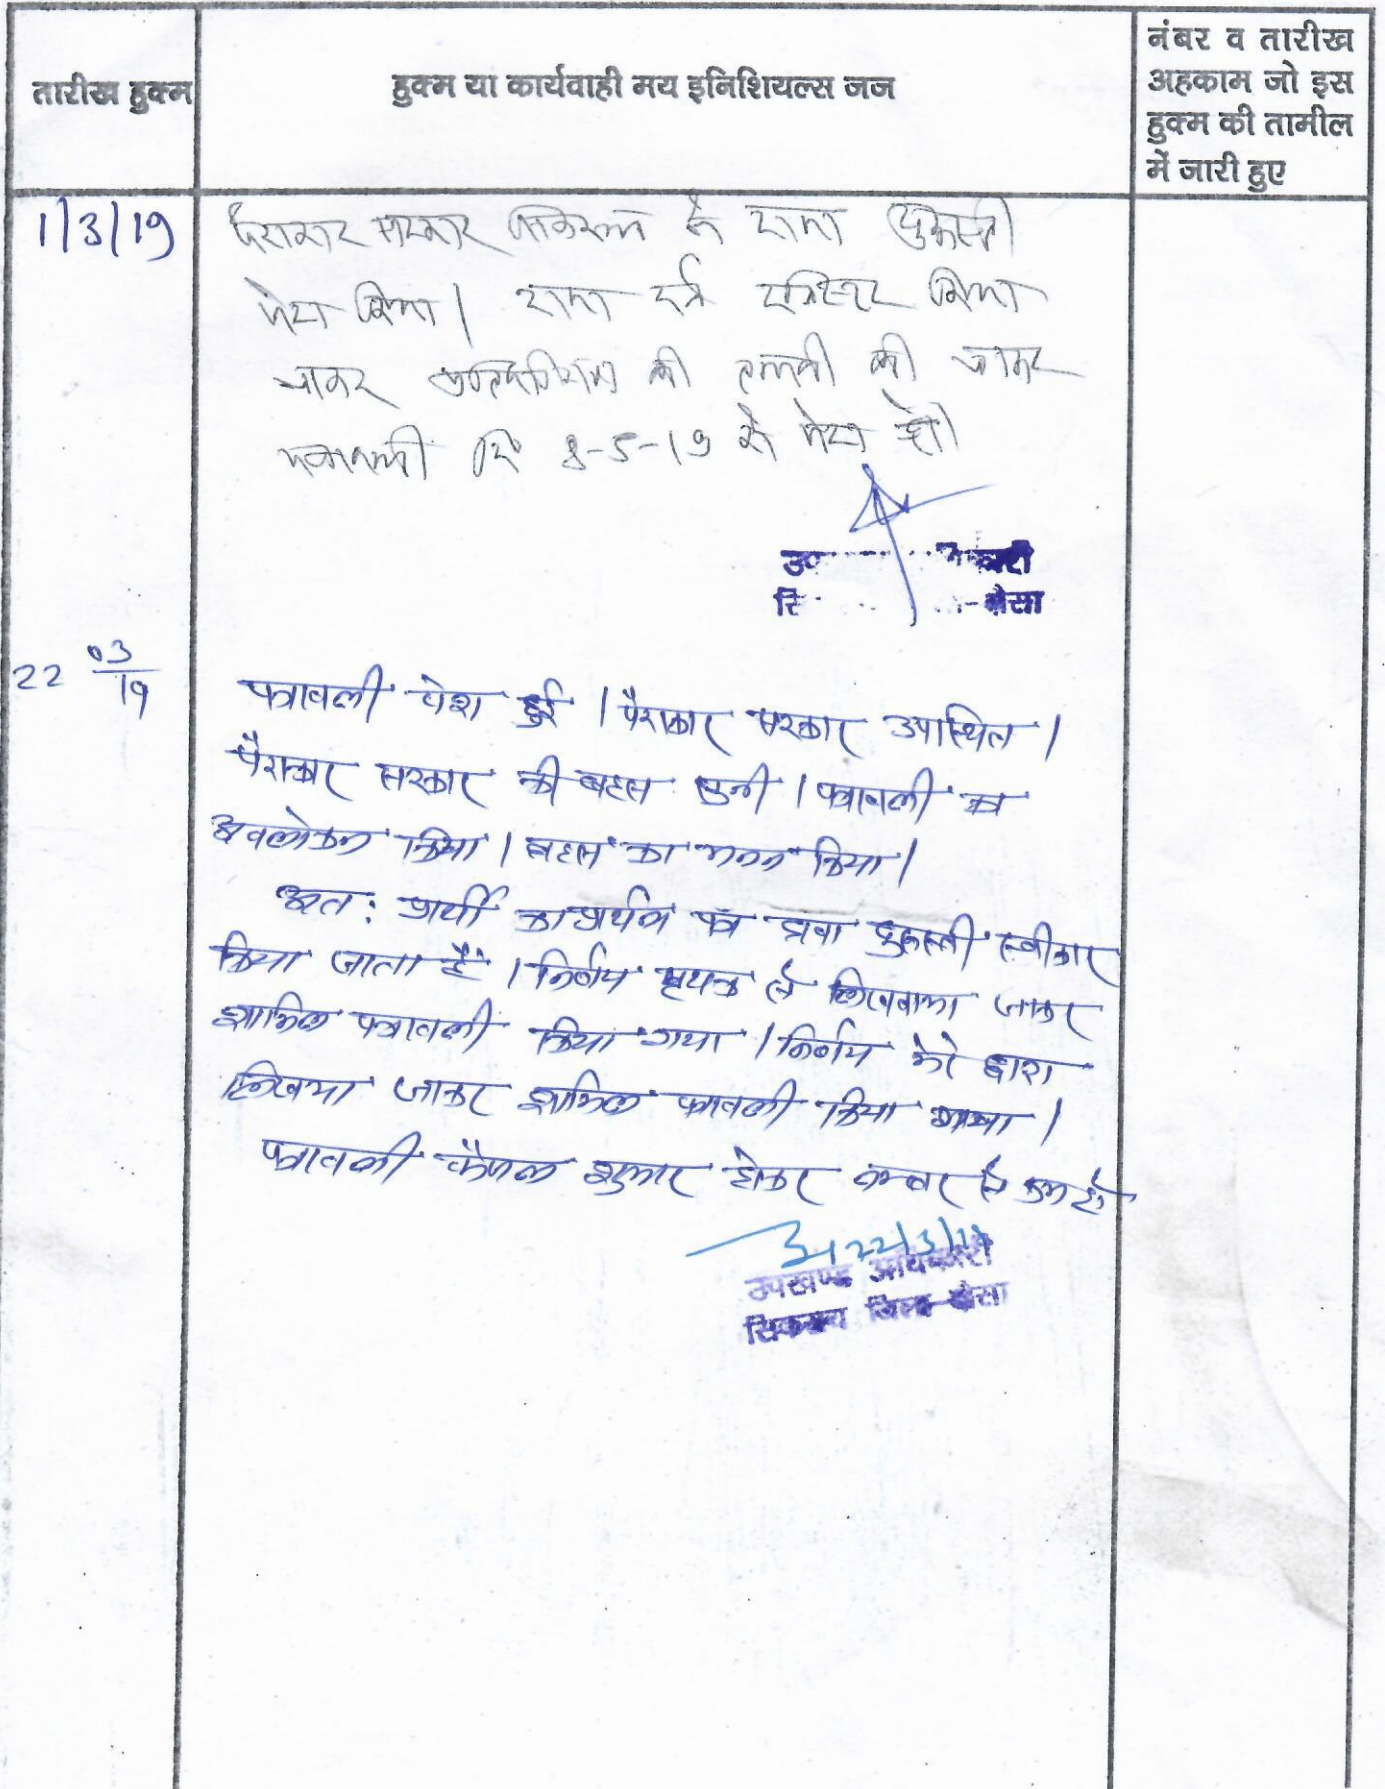 तारीख हुक्म
हुक्म या कार्यवाही मय इनिशियल्स जज
नंबर व तारीख
अहकाम जो इस
हुक्म की तामील
में जारी हुए
1/3/19
पैराकार सरकार ने दावा दुरूस्ती
पेश किया। दावा दर्ज रजिस्टर किया
जाकर की तलबी की जाकर
पत्रावली दि 8-5-19 को पेश हो।
22 03/19
पत्रावली पेश हुई । पैराकार सरकार उपास्थित ।
पैराकार सरकार की बहस सुनी । पत्रावली का
अवलोकन किया । बहस का मनन किया ।
अत: प्रार्थी का प्रार्थना पत्र दावा दुरूस्ती स्वीकार
किया जाता हैं । निर्णय पृथक से लिखवाया जाकर
शामिल पत्रावली किया गया । निर्णय मेरे द्वारा
लिखाया जाकर शामिल पत्रावली किया गया ।
पत्रावली फैसल शुमार होकर नम्बर से कम हो
22/3/19
उपखण्ड अधिकारी
सिकराय जिला-दौसा